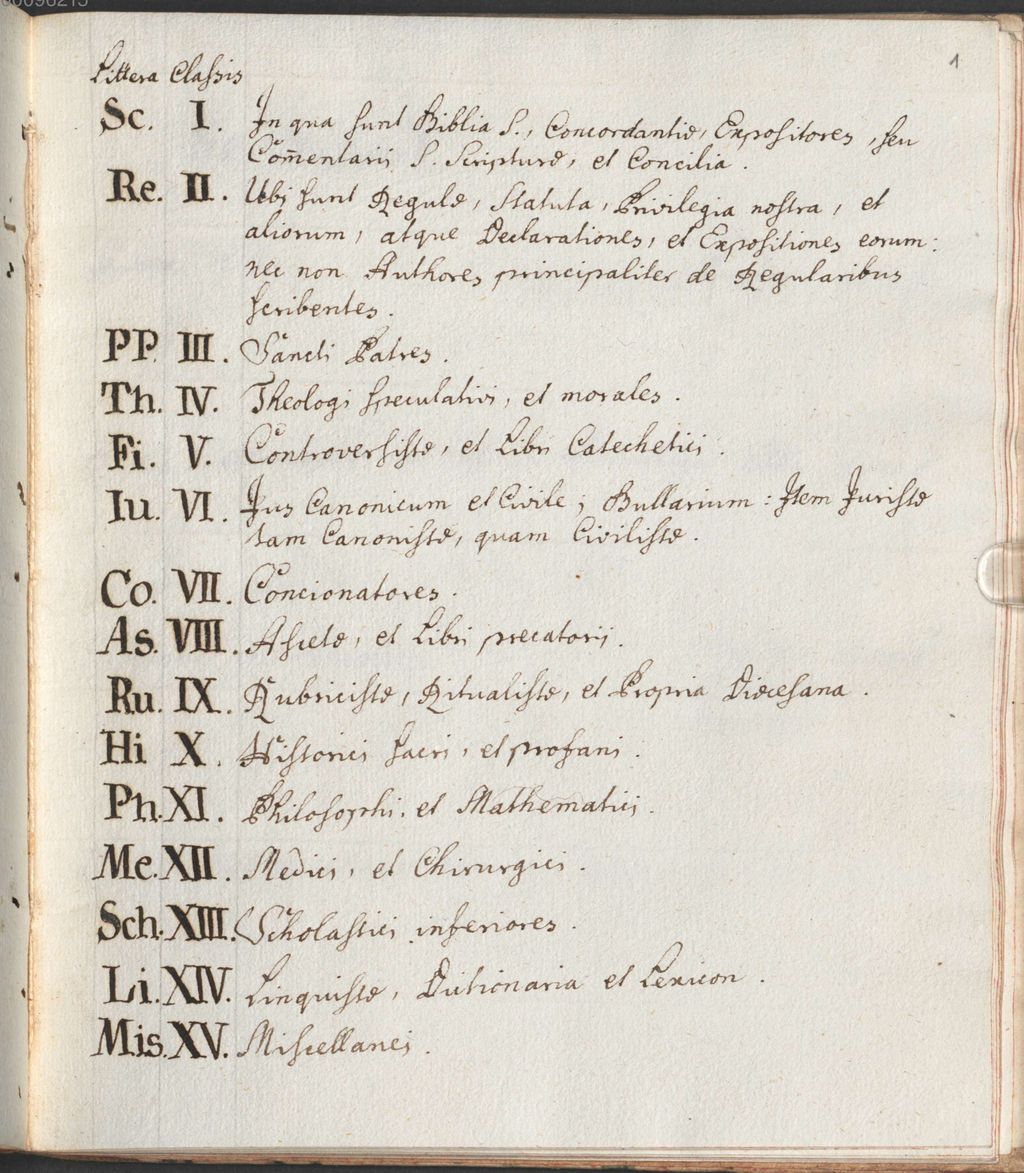 00096215
1
Littera Classis
Sc. I. In qua sunt Biblia S., Concordantiæ, Expositores, seu
Com̄entarij S. Scripturæ, et Concilia.
Re. II. Ubi sunt Regulæ, Statuta, Privilegia nostra, et
aliorum, atque Declarationes, et Expositiones eorum:
nec non Authores principaliter de Regularibus
scribentes.
PP. III. Sancti Patres.
Th. IV. Theologi speculativi, et morales.
Fi. V. Controversistæ, et Libri Catechetici.
Iu. VI. Jus Canonicum et Civile; Bullarium: Item Juristæ
tam Canonistæ, quam Civilistæ.
Co. VII. Concionatores.
As. VIII. Ascetæ, et Libri precatorij.
Ru. IX. Rubricistæ, Ritualistæ, et Propria Diœcesana.
Hi X. Historici sacri, et profani.
Ph. XI. Philosophi, et Mathematici.
Me. XII. Medici, et Chirurgici.
Sch. XIII. Scholastici inferiores.
Li. XIV. Linquistæ, Dictionaria et Lexicon.
Mis. XV. Miscellanei.